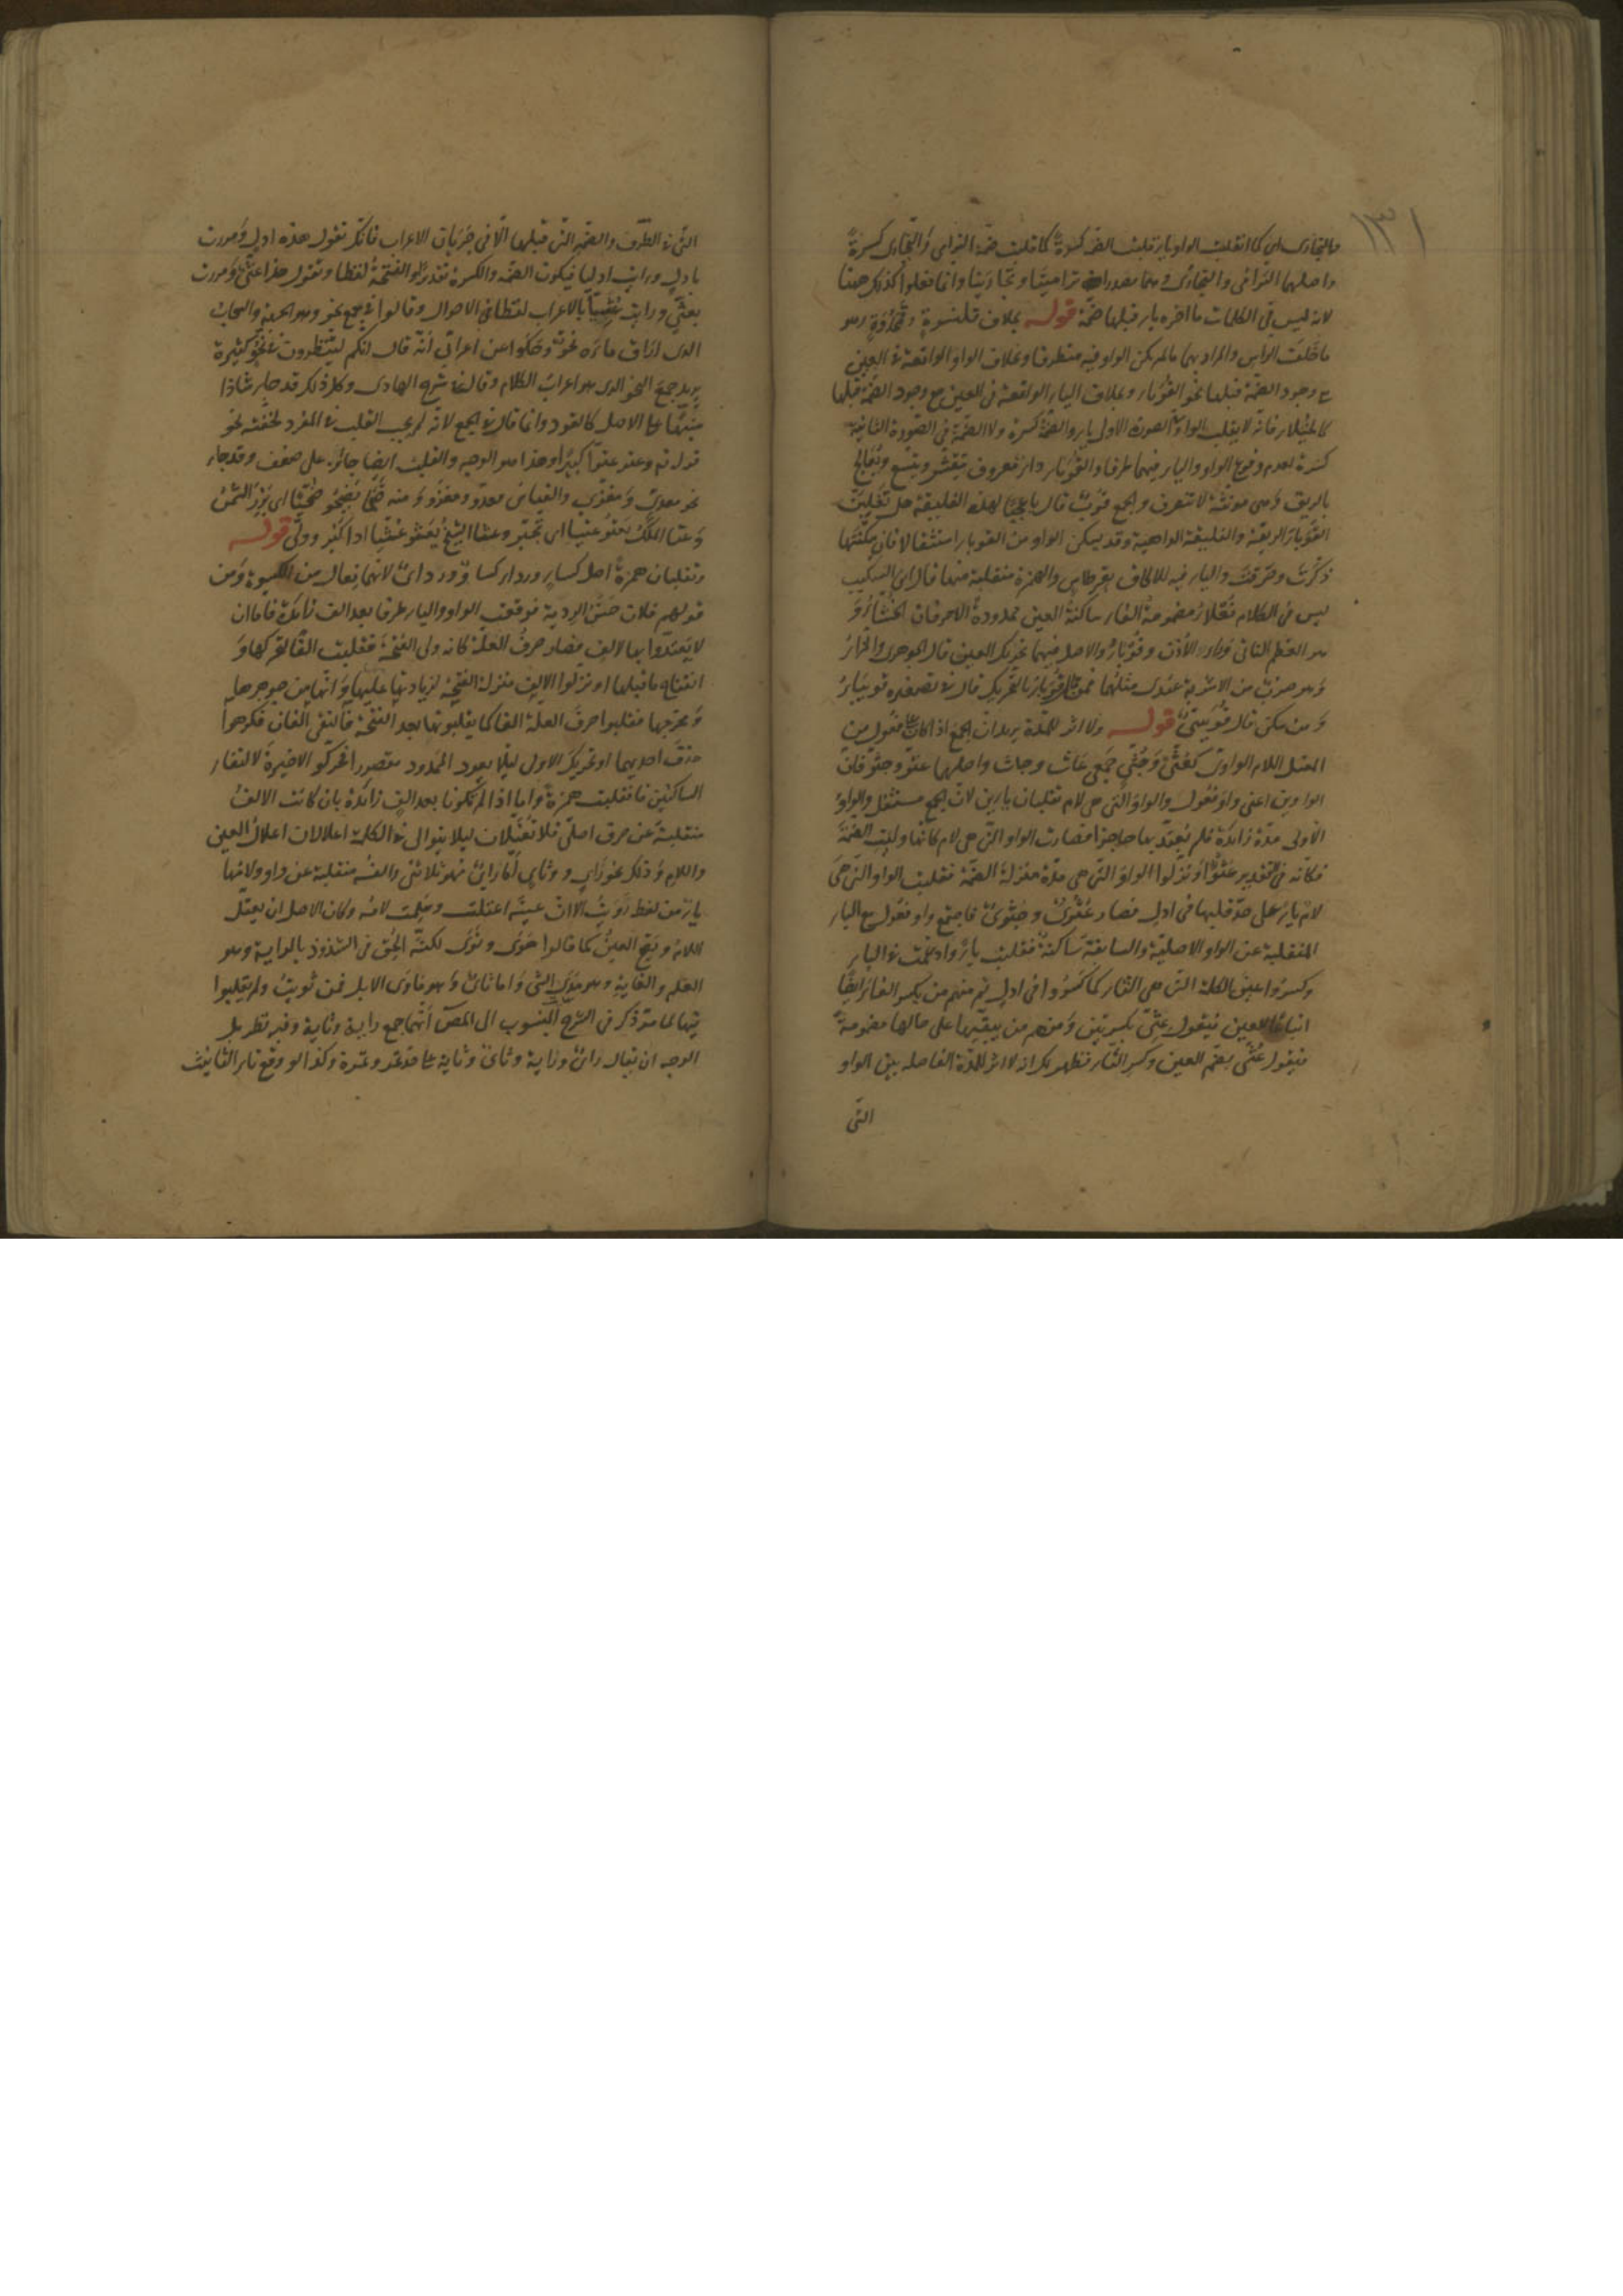 ١٣١
والتجارى اى كما انقلبت الواو ياء قلبت الضمة كسرة كما قلبت ضمة الترامى والتجارى كسرة
واصلهما الترامى والتجارى وهما مصدران ترامينا وتجارينا وانما فعلوا كذلك ههنا
لانه ليس فى الكلمات ما اخره ياء قبلها ضمة قوله بخلاف قلنسوة وقمحدوة وهو
ما خلف الراس والمراد بهما ما لم يكن الواو فيه متطرفا وبخلاف الواو الواقعة فى العين
مع وجود الضمة قبلها نحو القوباء وبخلاف الياء الواقعة فى العين مع وجود الضمة قبلها
كالخيلاء فانه لا يقلب الواو فى الصورة الاولى ياء والضمة كسرة ولا الضمة فى الصورة الثانية
كسرة لعدم وقوع الواو والياء فيهما طرفا والقوباء داء معروف يتقشر ويتسع ويعالج
بالريق وهى مؤنثة لا تنصرف والجمع قوب قال يا عجبا لهذه الفليقة هل تغلبن
القوباء الريقة والفليقة الداهية وقد يسكن الواو من القوباء استثقالا فان سكنتها
ذكرت وصرفت والياء فيه للالحاق بقرطاس والهمزة منقلبة منها قال ابن السكيت
ليس فى الكلام فعلاء مضمومة الفاء ساكنة العين ممدودة الا حرفان الخشاء و
هو العظم الناتى وراء الاذن وقوباء والاصل فيهما تحريك العين قال الجوهرى والمزاء
وهو ضرب من الاشربة عندى مثلهما فمن قال قوباء بالتحريك قال فى تصغيره قويباء
ومن سكن قال قويبى قوله ولا اثر للمدة يريد ان الجمع اذا كان على فعول من
المعتل اللام الواوى كعثى وجثى جمعى عاث وجاث واصلهما عثوو وجثوو فان
الواوين اعنى واو فعول والواو التى هى لام تقلبان يائين لان الجمع مستثقل والواو
الاولى مدة زائدة فلم يعتد بها حاجزا فصارت الواو التى هى لام كانها وليت الضمة
فكانه فى التقدير عثو او نزلوا الواو التى هى مدة منزلة الضمة فقلبت الواو التى هى
لام ياء على حد قلبها فى ادل فصار عثوى وجثوى فاجتمع واو فعول مع الياء
المنقلبة عن الواو الاصلية والسابقة ساكنة فقلبت ياء وادغمت فى الياء
وكسروا عين الكلمة التى هى الثاء كما كسروا فى ادل ثم منهم من يكسر الفاء ايضا
اتباعا للعين فيقول عثى بكسرتين ومنهم من يبقيها على حالها مضمومة
فيقول عثى بضم العين وكسر الثاء فظهر لك ان لا اثر للمدة الفاصلة بين الواو
التى
التى فى الطرف والضمة التى قبلها الا فى جريان الاعراب فانك تقول هذه ادل ومررت
بادل ورايت ادليا فيكون الضمة والكسرة تقديرا والفتحة لفظا وتقول هذا عثى ومررت
بعثى ورايت عثيا بالاعراب لفظا فى الاحوال وقالوا فى جمع نحو وهو الجهة والسحاب
الذى اراق ماءه نحو وحكوا عن اعرابى انه قال انكم لتنظرون فى نحو كثيرة
يريد جمع النحو الذى هو اعراب الكلام وقال فى شرح الهادى وكل ذلك قد جاء شاذا
منبها على الاصل كالقود وانما قال فى الجمع لانه لم يجب القلب فى المفرد لخفته نحو
قوله تع وعتو عتوا كبيرا وهذا هو الوجه والقلب ايضا جائز على ضعف وقد جاء
نحو معدى ومغزى والقياس معدو ومغزو ومنه ضحا يضحو ضحيا اى برز للشمس
وعتا الملك يعتو عتيا اى تجبر وعثا الشيخ يعثو عثيا اذا كبر وولى قوله
وتقلبان همزة اصل كساء ورداء كساو ورداى لانهما فعال من الكسوة ومن
قولهم فلان حسن الردية فوقعت الواو والياء طرفا بعد الف زائدة فاما ان
لا يعتدوا بها لالف فصار حرف العلة كانه ولى الفتحة فقلبت الفا لتحركها و
انفتاح ما قبلها او نزلوا الالف منزلة الفتحة لزيادتها عليها وانها من جوهرها
ومخرجها فقلبوا حرف العلة الفا كما يقلبونها بعد الفتحة فالتقى الفان فكرهوا
حذف احديهما او تحريك الاول ليلا يعود الممدود مقصورا فحركوا الاخيرة لالتقاء
الساكنين فانقلبت همزة واما اذا لم تكونا بعد الف زائدة بان كانت الالف
منقلبة عن حرف اصلى فلا تعتلان ليلا يتوالى فى الكلمة اعلالان اعلال العين
واللام وذلك نحو زاى وثاى اما زاى فهو ثلاثى والفه منقلبة عن واو ولامها
ياء من لفظ زويت الا ان عينه اعتلت وسلمت لامه وكان الاصل ان يعتل
اللام ويصح العين كما قالوا هوى ونوى لكنه الحق فى الشذوذ بالراية وهو
العلم والغاية وهو مدى الشى واما ثاى وهو ماوى الابل فمن ثويت ولم يقلبوا
يائها لما مر ذكر فى الشرح المنسوب الى المص انهما جمع راية وثاية وفيه نظر بل
الوجه ان يقال راى وراية وثاى وثاية على حد تمر وتمرة وكذا لو وقع تاء التانيث